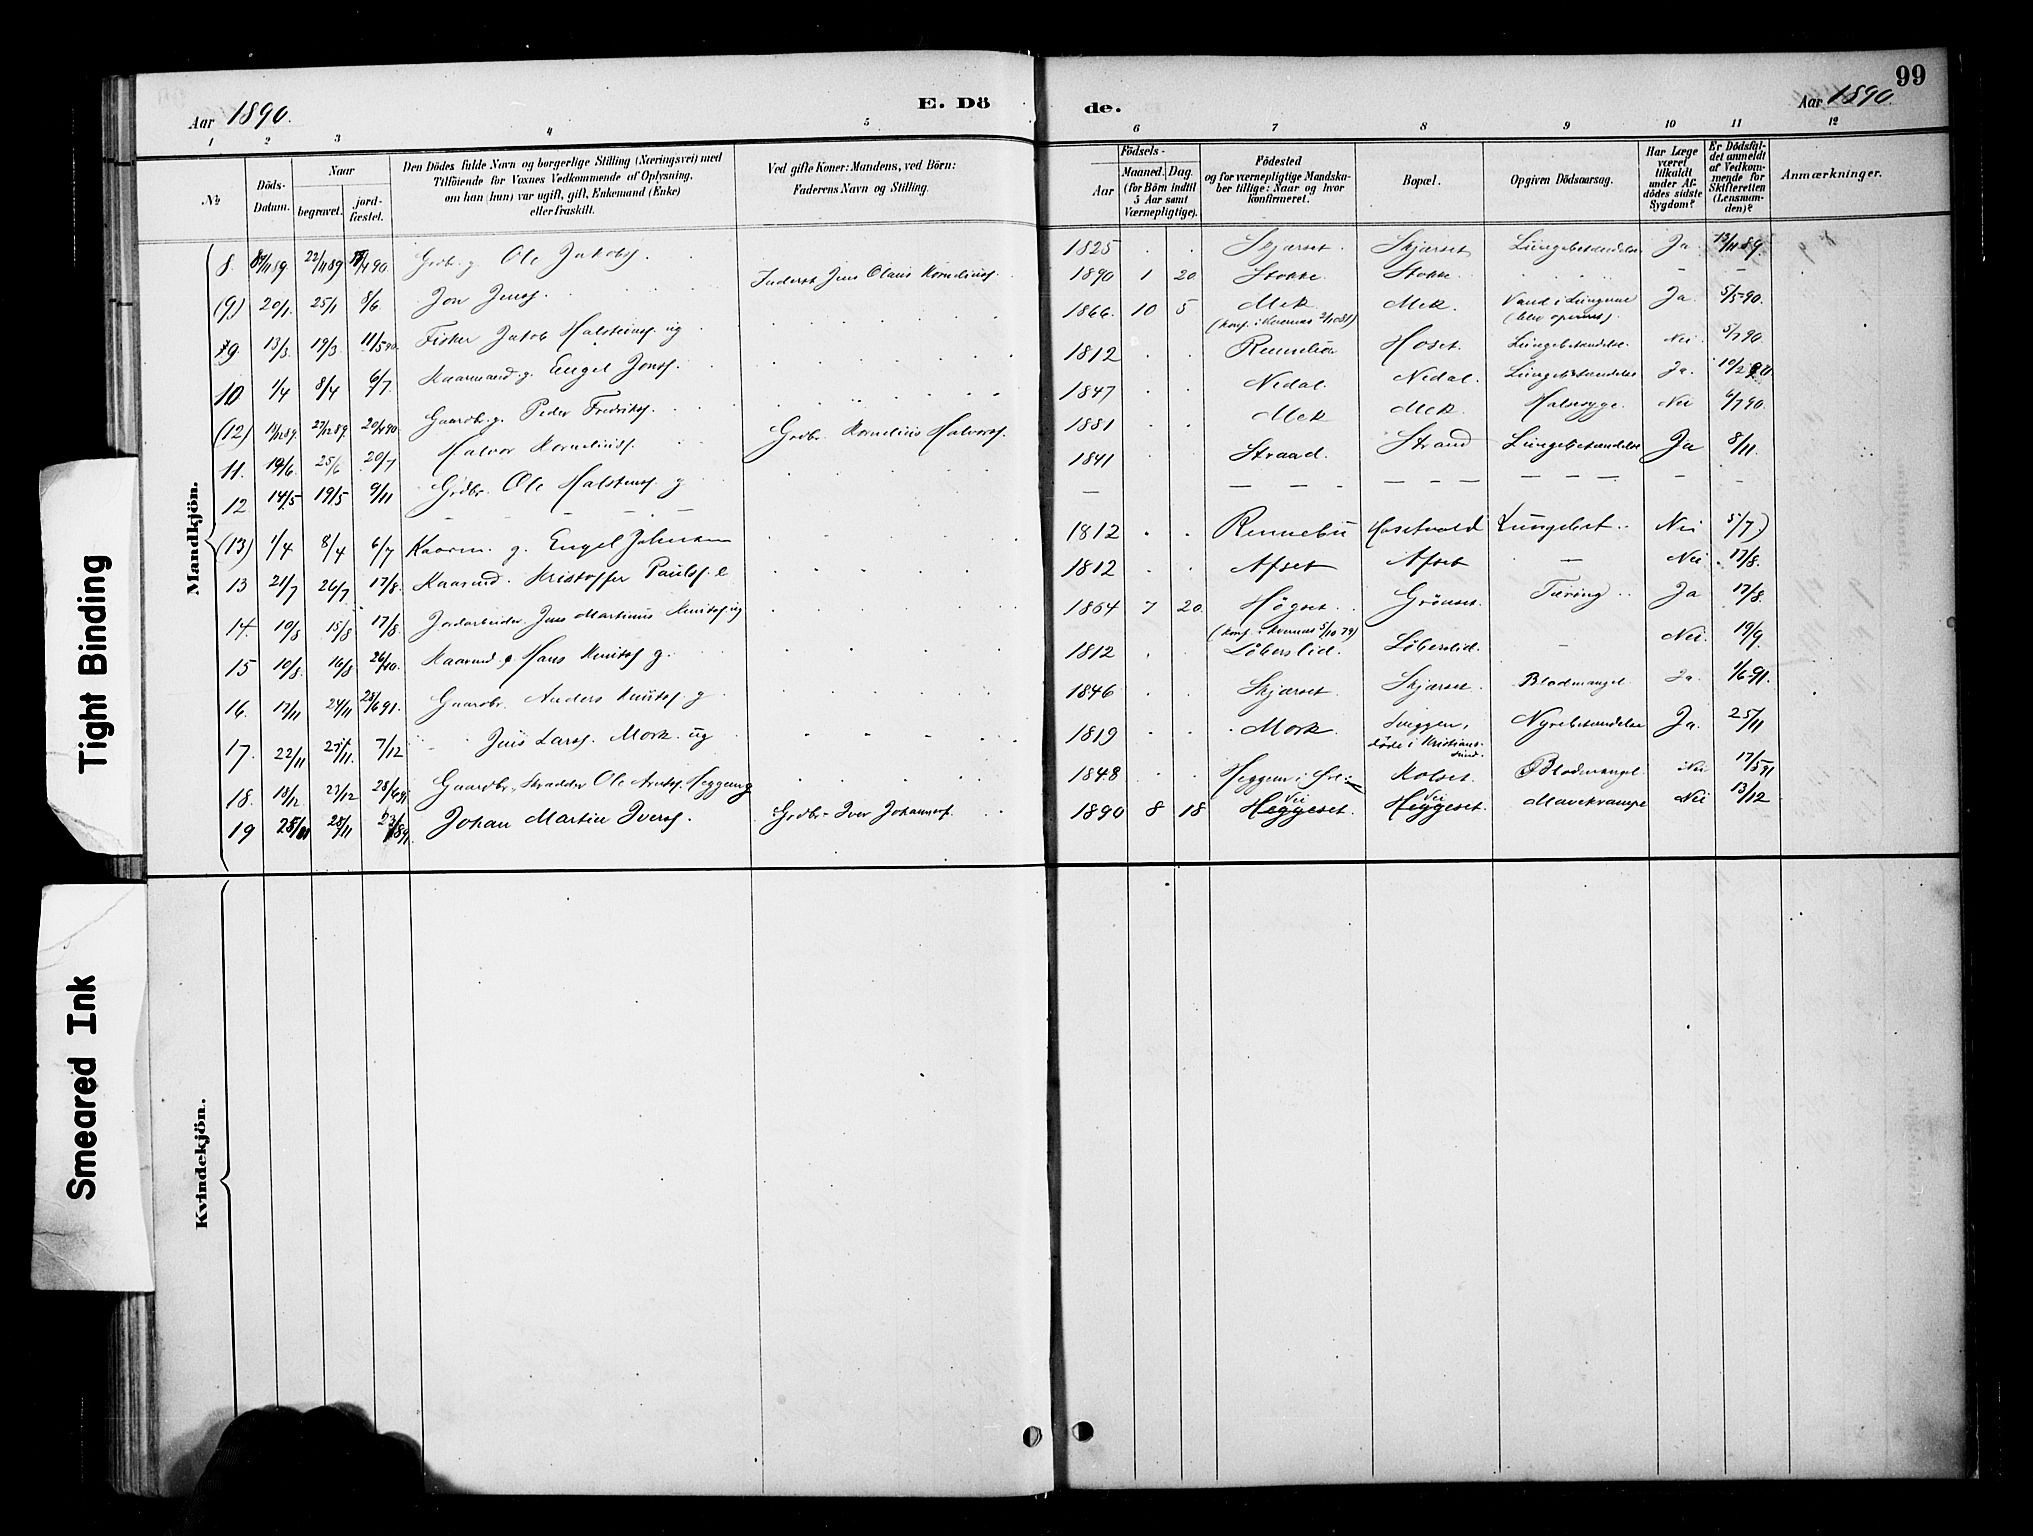 99
Aar 1890.
E. Dö
de.
Aar 1890.
1 2 3 4 5 6 7 8 9 10 11 12
№
Döds-
Datum.
Naar
begravet.
jord-
fæstet.
Den Dödes fulde Navn og borgerlige Stilling (Næringsvei) med
Tilföiende for Voxnes Vedkommende af Oplysning,
om han (hun) var ugift, gift, Enkemand (Enke)
eller fraskilt.
Ved gifte Koner: Mandens, ved Börn:
Faderens Navn og Stilling.
Födsels-
Aar
Maaned.
Dag.
(for Börn indtil
5 Aar samt
Værnepligtige).
Födested
og for værnepligtige Mandska-
ber tillige: Naar og hvor
konfirmeret.
Bopæl.
Opgiven Dödsaarsag.
Har Læge
været
tilkaldt
under Af-
dödes sidste
Sygdom?
Er Dödsfal-
det anmeldt
af Vedkom-
mende for
Skifteretten
(Lensman-
den)?
Anmærkninger.
Mandkjön.
8. 22/11 89 Grdb. g. Ole Jakobs. 1825 Skjærset. Skjærset Lungebetændelse Ja 13/11 89.
(9.) 20/1 25/1 8/6 Jon Jenss. Inderst Jens Olaus Kornelius. 1890 1 20 Stokke. Stokke – –
9. 13/3 19/3 11/5 90. Fisker Jakob Halsteins. ug 1866 10 5 Mek Mek. Vand i Lungerne Ja 5/5 90.
(konf. i Kvernes 2/10 81)
10 1/4 8/4 6/7 Kaarmand g. Engel Jons. 1812 Hoset. Lungebetændelse. Nei 5/7 90.
(12) 27/12 89. 20/4 90 Gaardb. g. Peder Fredriks. 1847 Nedal. Nedal. Lungebetændelse Ja.
11. 19/6. 25/6 20/7 Halvor Kornelius. Grdbr. Kornelius Halvors. 1881 Mek Mek. Halssyge. Nei 6/7 90.
12 14/5 19/5 9/11 Grdbr. Ole Halstens. g 1841 Strand. Strand Lungebetændelse Ja 8/11
– – – –
(13) 1/4 8/4 6/7 Kaarm. g. Engel Johnsen 1812 Rennebu Hosetvold Lungebet. Nei 5/7)
13 21/7 26/7 17/8. Kaarmd. Kristoffer Pauls. e 1812 Afset Afset – Nei 17/8.
14. 10/8 15/8 17/8. Jordarbeider Jens Martinus Knuts. ug 1864 7 20. Høgset. Grönset. Tæring Ja 17/8.
(konf. i Kvernes 5/10 79)
15 10/8. 16/8 26/10. Kaarmd. Hans Knuts. g. 1812 Löberslid. Löberslid. – Nei. 19/9.
16. 17/11 24/11 28/6 91. Gaardbr. Anders Knuts. g 1846 Skjærset. Skjærset. Blodmangel. Ja. 1/6 91.
17. 22/11 25/11. 7/12 " Jens Lars. Mork. ug 1819 Mork. Sveggen, Nyrebetændelse Ja. 25/11
döde i Kristians-
sund.
18. 18/12 23/12 28/6 91 Gaardbr. Skrædder Ole Arnts. Heggem g 1848 Heggem i Kolset. Blodmangel. Nei 17/5 91
19 28/11 Johan Martin Ivers. Grdbr. Iver Johannes. 1890 8 18 Heggeset. Heggeset. Mavekrampe Nei 13/12
Vei Vei
Kvindekjön.
Tight Binding
Smeared Ink